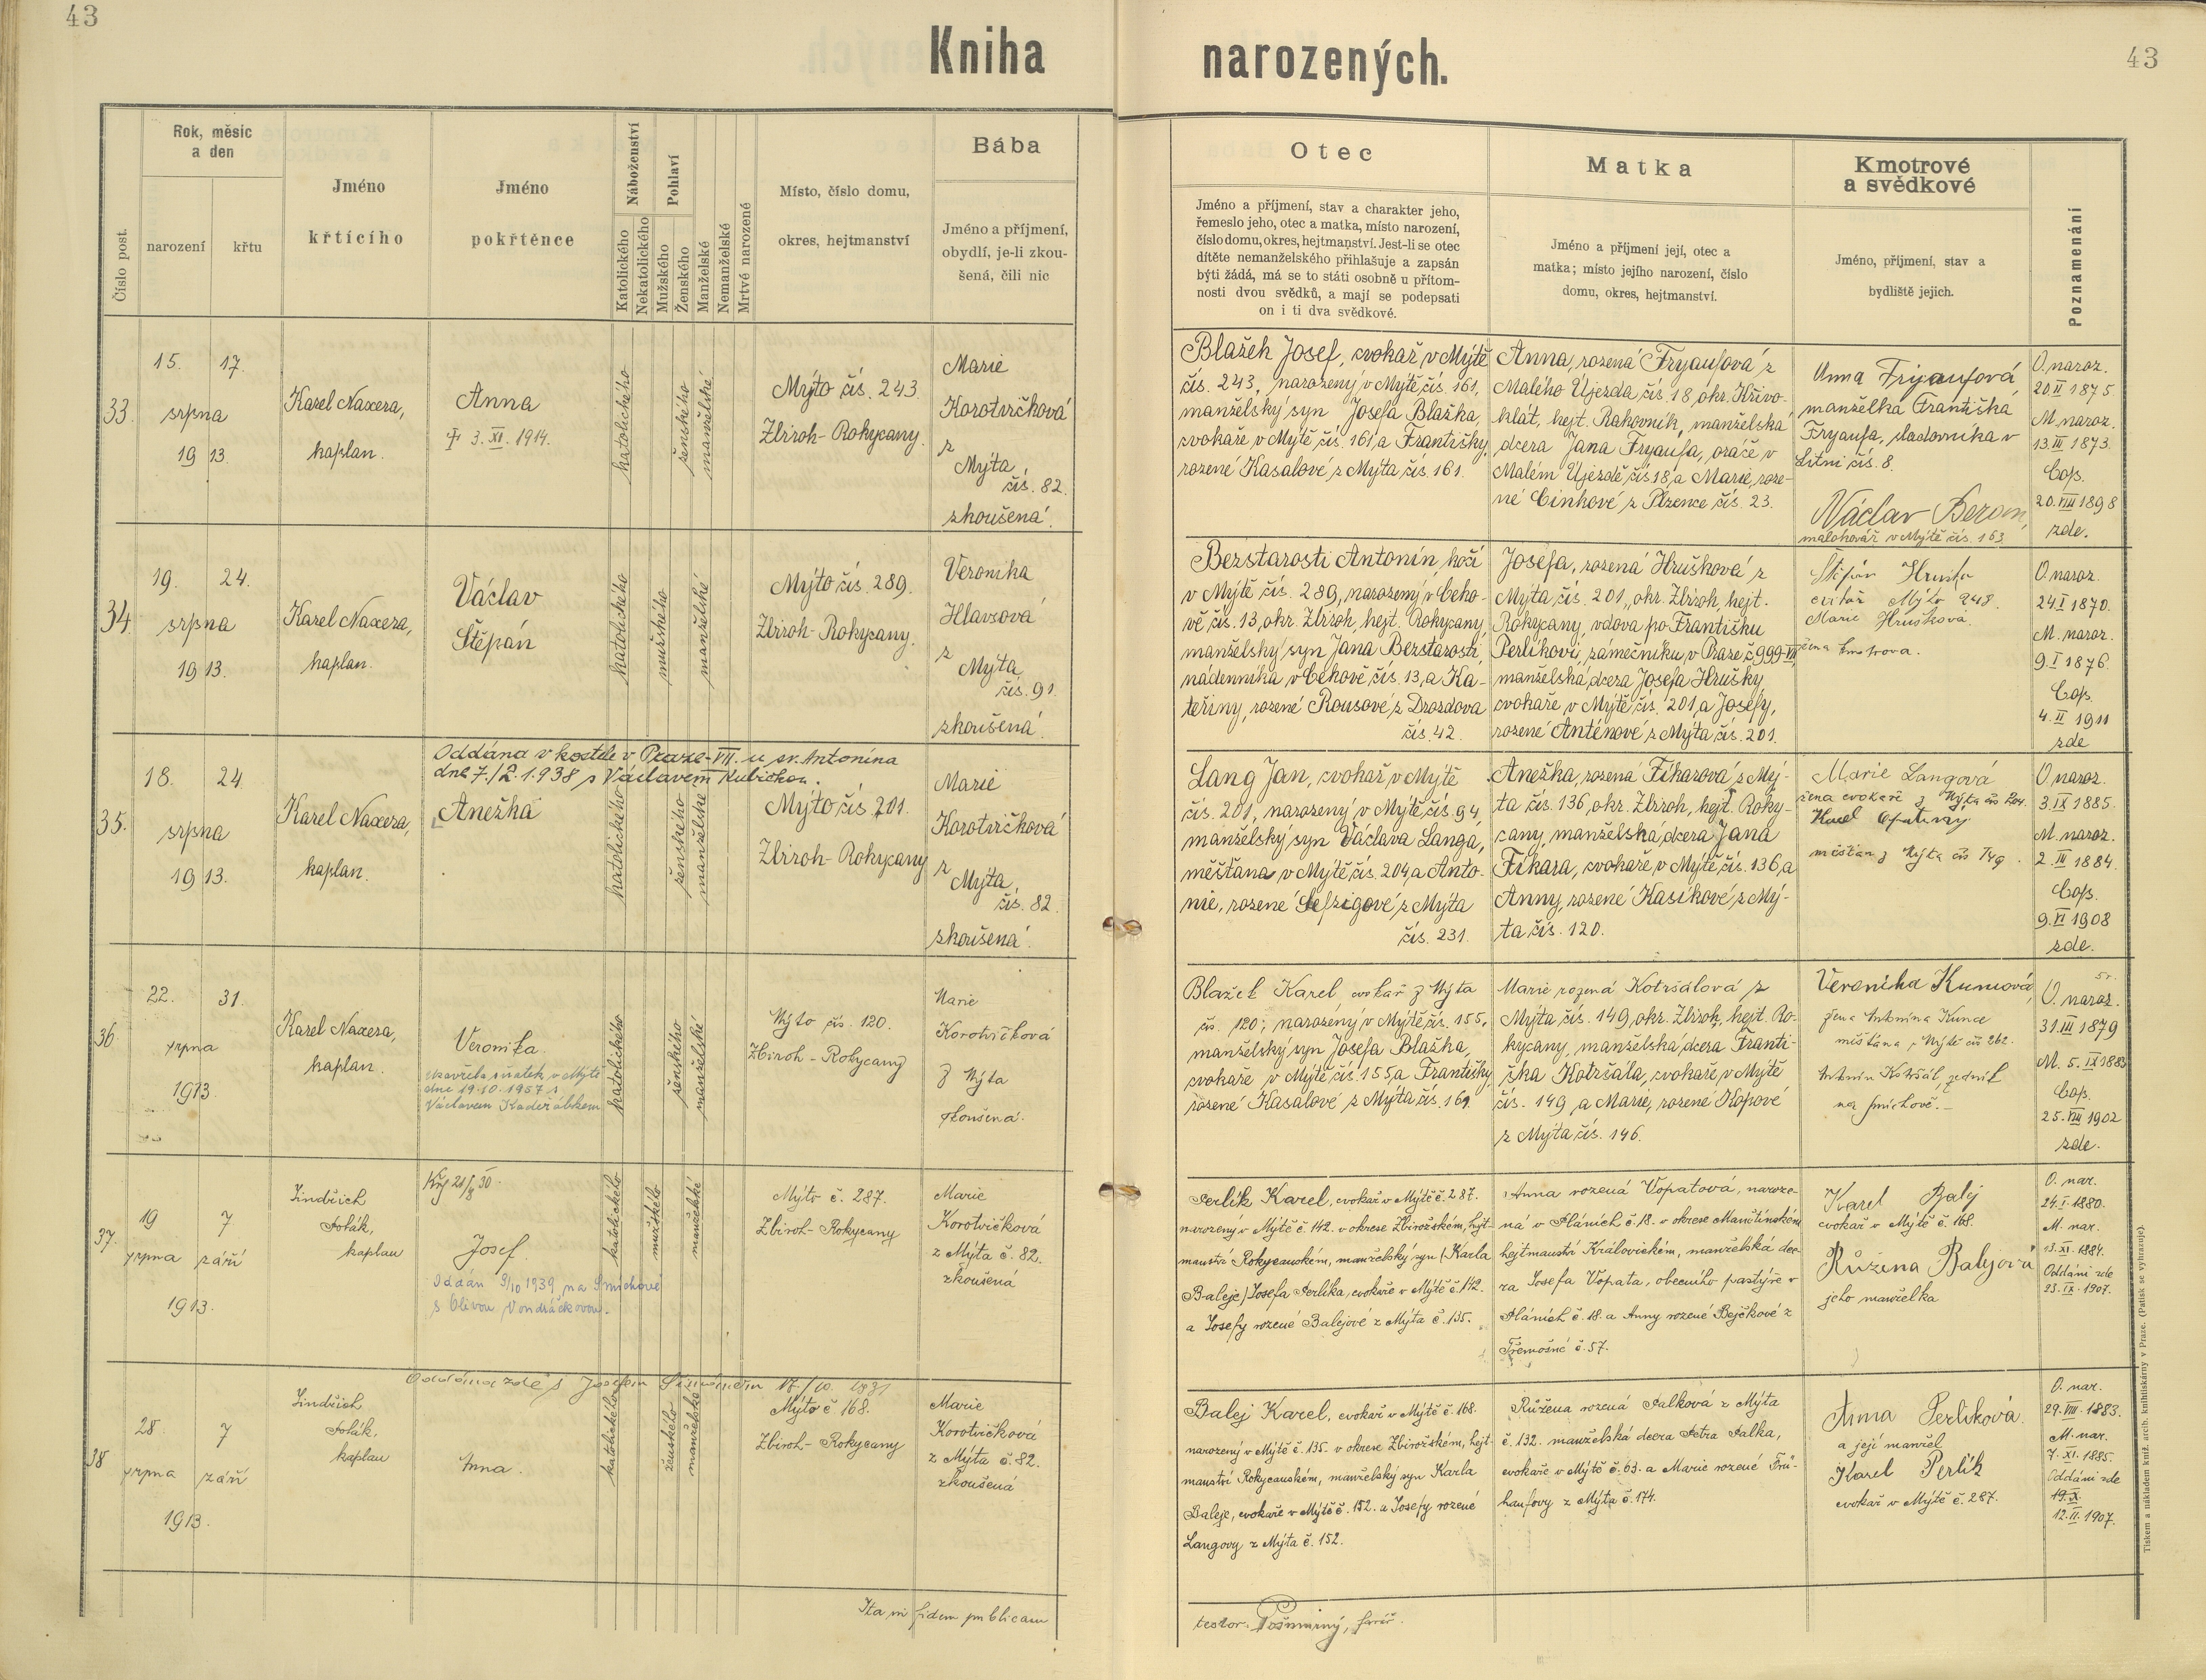 43
Kniha narozených.
43
Číslo post.
Rok, měsíc
a den
narození
křtu
Jméno
křtícího
Jméno
pokřtěnce
Náboženství
Katolického
Nekatolického
Pohlaví
Mužského
Ženského
Manželské
Nemanželské
Mrtvé narozené
Místo, číslo domu,
okres, hejtmanství
Bába
Jméno a příjmení,
obydlí, je-li zkou-
šená, čili nic
Otec
Jméno a příjmení, stav a charakter jeho,
řemeslo jeho, otec a matka, místo narození,
číslo domu, okres, hejtmanství. Jest-li se otec
dítěte nemanželského přihlašuje a zapsán
býti žádá, má se to státi osobně u přítom-
nosti dvou svědků, a mají se podepsati
on i ti dva svědkové.
Matka
Jméno a příjmení její, otec a
matka; místo jejího narození, číslo
domu, okres, hejtmanství.
Kmotrové
a svědkové
Jméno, příjmení, stav a
bydliště jejich.
Poznamenání
33.
15. 17.
srpna
1913.
Karel Naxera,
kaplan.
Anna
† 3. XI. 1914.
katolického
ženského
manželské
Mýto čís. 243.
Zbiroh-Rokycany.
Marie
Korotvičková
z
Mýta,
čís. 82.
zkoušená.
Blažek Josef, cvokař v Mýtě
čís. 243, narozený v Mýtě čís. 161,
manželský syn Josefa Blažka,
cvokaře v Mýtě čís. 161, a Františky,
rozené Kasalové z Mýta čís. 161.
Anna, rozená Fryaufová z
Malého Újezda, čís. 18, okr. Křivo-
klát, hejt. Rakovník, manželská
dcera Jana Fryaufa, oráče v
Malém Újezdě čís. 18, a Marie, roze-
né Cinkové z Plzence čís. 23.
Anna Fryaufová,
manželka Františka
Fryaufa, sladovníka v
Litni čís. 8.
Václav Beran,
malokovář v Mýtě čís. 163
O. naroz.
20 II 1875.
M. naroz.
13. III 1873.
Cop.
20. VIII 1898
zde.
34.
19. 24.
srpna
1913.
Karel Naxera,
kaplan.
Václav
Štěpán
katolického
mužského
manželské
Mýto čís. 289.
Zbiroh-Rokycany.
Veronika
Hlavsová
z
Mýta,
čís. 91.
zkoušená.
Bezstarosti Antonín, kočí
v Mýtě čís. 289, narozený v Ceko-
vě čís. 13, okr. Zbiroh, hejt. Rokycany,
manželský syn Jana Bezstarosti,
nádenníka v Cekově čís. 13, a Ka-
teřiny, rozené Rousové z Drozdova
čís. 42.
Josefa, rozená Hrušková z
Mýta, čís. 201, okr. Zbiroh, hejt.
Rokycany, vdova po Františku
Perlíkovi, zámečníku, v Praze č. 999-VII,
manželská dcera Josefa Hrušky,
cvokaře v Mýtě čís. 201, a Josefy,
rozené Anténové z Mýta čís. 201.
Štěpán Hruška
cvikař Mýto 248.
Marie Hrušková
žena kmotrova.
O. naroz.
24 I 1870.
M. naroz.
9. I 1876.
Cop.
4. II 1911
zde
35.
Oddána v kostele v Praze-VII. u sv. Antonína
dne 7./2. 1938 s Václavem Kubíčkou.
18. 24.
srpna
1913.
Karel Naxera,
kaplan.
Anežka
katolického
ženského
manželské
Mýto čís. 201.
Zbiroh-Rokycany
Marie
Korotvičková
z
Mýta,
čís. 82.
zkoušená.
Lang Jan, cvokař v Mýtě
čís. 201, narozený v Mýtě čís. 94,
manželský syn Václava Langa,
měšťana v Mýtě čís. 204, a Anto-
nie, rozené z Mýta
čís. 231.
Anežka, rozená Fikarová z Mý-
ta čís. 136, okr. Zbiroh, hejt. Roky-
cany, manželská dcera Jana
Fikara, cvokaře, v Mýtě čís. 136, a
Anny, rozené Kasíkové z Mý-
ta čís. 120.
Marie Langová
žena cvokaře z Mýta čís 204.
Karel Opatrný
měšťan z Mýta čís 149.
O. naroz.
3. IX 1885.
M. naroz.
2. III 1884.
Cop.
9. VI 1908
zde.
36.
22. 31.
srpna
1913.
Karel Naxera,
kaplan.
Veronika.
uzavřela sňatek v Mýtě
dne 19.10.1957 s
Václavem Kadeřábkem
katolického
ženského
manželské
Mýto čís. 120.
Zbiroh - Rokycany
Marie
Korotvičková
z Mýta
zkoušená.
Blažek Karel, cvokař z Mýta
čís. 120; narozený v Mýtě čís. 155,
manželský syn Josefa Blažka,
cvokaře v Mýtě čís. 155, a Františky,
rozené Kasalové z Mýta čís. 161.
Marie rozená Kotršálová z
Mýta čís. 149, okr. Zbiroh, hejt. Ro-
kycany, manželská dcera Franti-
ška Kotršála, cvokaře, v Mýtě
čís. 149, a Marie, rozené Kopové
z Mýta čís. 146.
Veronika Kuncová,
žena Antonína Kunce
měšťana v Mýtě čís 262.
Antonín Kotršál, zedník
na Smíchově.
O. naroz.
31. III 1879
M. 5. IX 1883
Cop.
25. VIII 1902
zde.
37.
19 7
srpna září
1913.
Jindřich
Polák,
kaplan
Josef.
Oddán 9/10 1939 na Smíchově
s Olivou Vondráčkovou.
katolického
mužského
manželské
Mýto č. 287.
Zbiroh-Rokycany
Marie
Korotvičková
z Mýta č. 82.
zkoušená
Perlík Karel, cvokař v Mýtě č. 287.
narozený v Mýtě č. 142. v okrese Zbirožském, hejt-
manství Rokycanském, manželský syn (Karla
Baleje) Josefa Perlíka, cvokaře v Mýtě č. 142.
a Josefy rozené Balejové z Mýta č. 135.
Anna rozená Vopatová, naroze-
ná v Pláních č. 18. v okrese Manětínském
hejtmanství Královickém, manželská dce-
ra Josefa Vopata, obecního pastýře v
Pláních č. 18. a Anny rozené Bejčkové z
Třemošné č. 57.
Karel Balej
cvokař v Mýtě č. 168.
Růžena Balejová
jeho manželka
O. nar.
24. I. 1880.
M. nar.
13. XI. 1884.
Oddáni zde
23. IX. 1907.
38
Oddána zde s Josefem 17/10. 1931
28. 7
srpna září
1913.
Jindřich
Polák,
kaplan
Anna.
katolického
ženského
manželské
Mýto č. 168.
Zbiroh-Rokycany
Marie
Korotvičková
z Mýta č. 82.
zkoušená
Balej Karel, cvokař v Mýtě č. 168.
narozený v Mýtě č. 135. v okrese Zbirožském, hejt-
manství Rokycanském, manželský syn Karla
Baleje, cvokaře v Mýtě č. 152. a Josefy rozené
Langovy z Mýta č. 152.
Růžena rozená Palková z Mýta
č. 132. manželská dcera Petra Palka,
cvokaře v Mýtě č. 63. a Marie rozené Frü-
haufovy z Mýta č. 174.
Anna Perlíková.
a její manžel
Karel Perlík
cvokař v Mýtě č. 287.
O. nar.
29. VIII. 1883.
M. nar.
7. XI. 1885.
Oddáni zde
12. II. 1907.
Ita in fidem publicam
testor. Pošmurný, farář.
Tiskem a nákladem kníž. arcib. knihtiskárny v Praze. (Patisk se vyhrazuje).